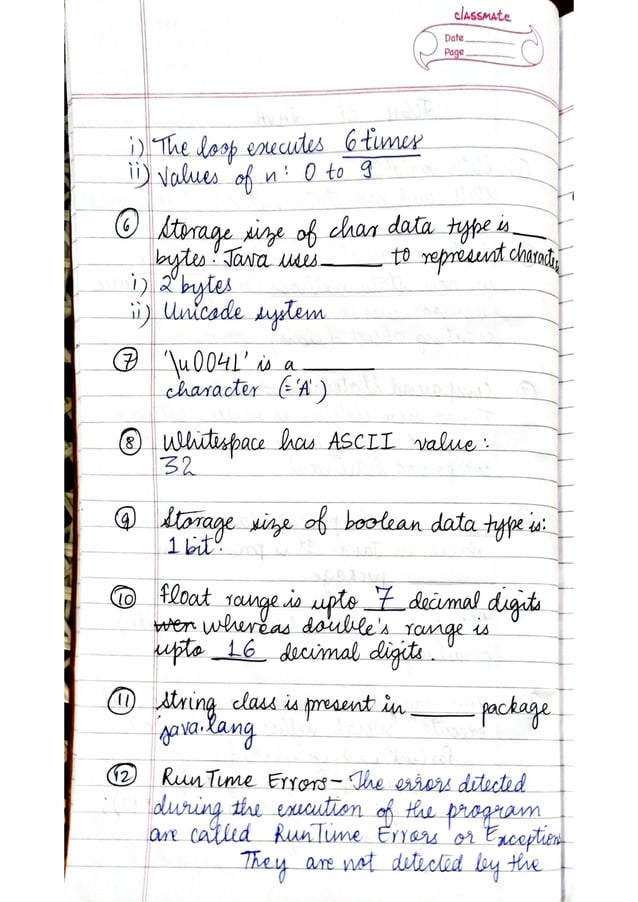 classmate
Date
Page
i) The loop executes 6 times
ii) Values of n: 0 to 9
6 Storage size of char data type is ____
bytes. Java uses ____ to represent character
i) 2 bytes
ii) Unicode system
7 '\u0041' is a ____
character (='A')
8 Whitespace has ASCII value:
32
9 Storage size of boolean data type is:
1 bit.
10 float range is upto 7 decimal digits
whereas double's range is
upto 16 decimal digits.
11 String class is present in ____ package
java.lang
12 RunTime Errors - The errors detected
during the execution of the program
are called RunTime Errors or Exception
They are not detected by the